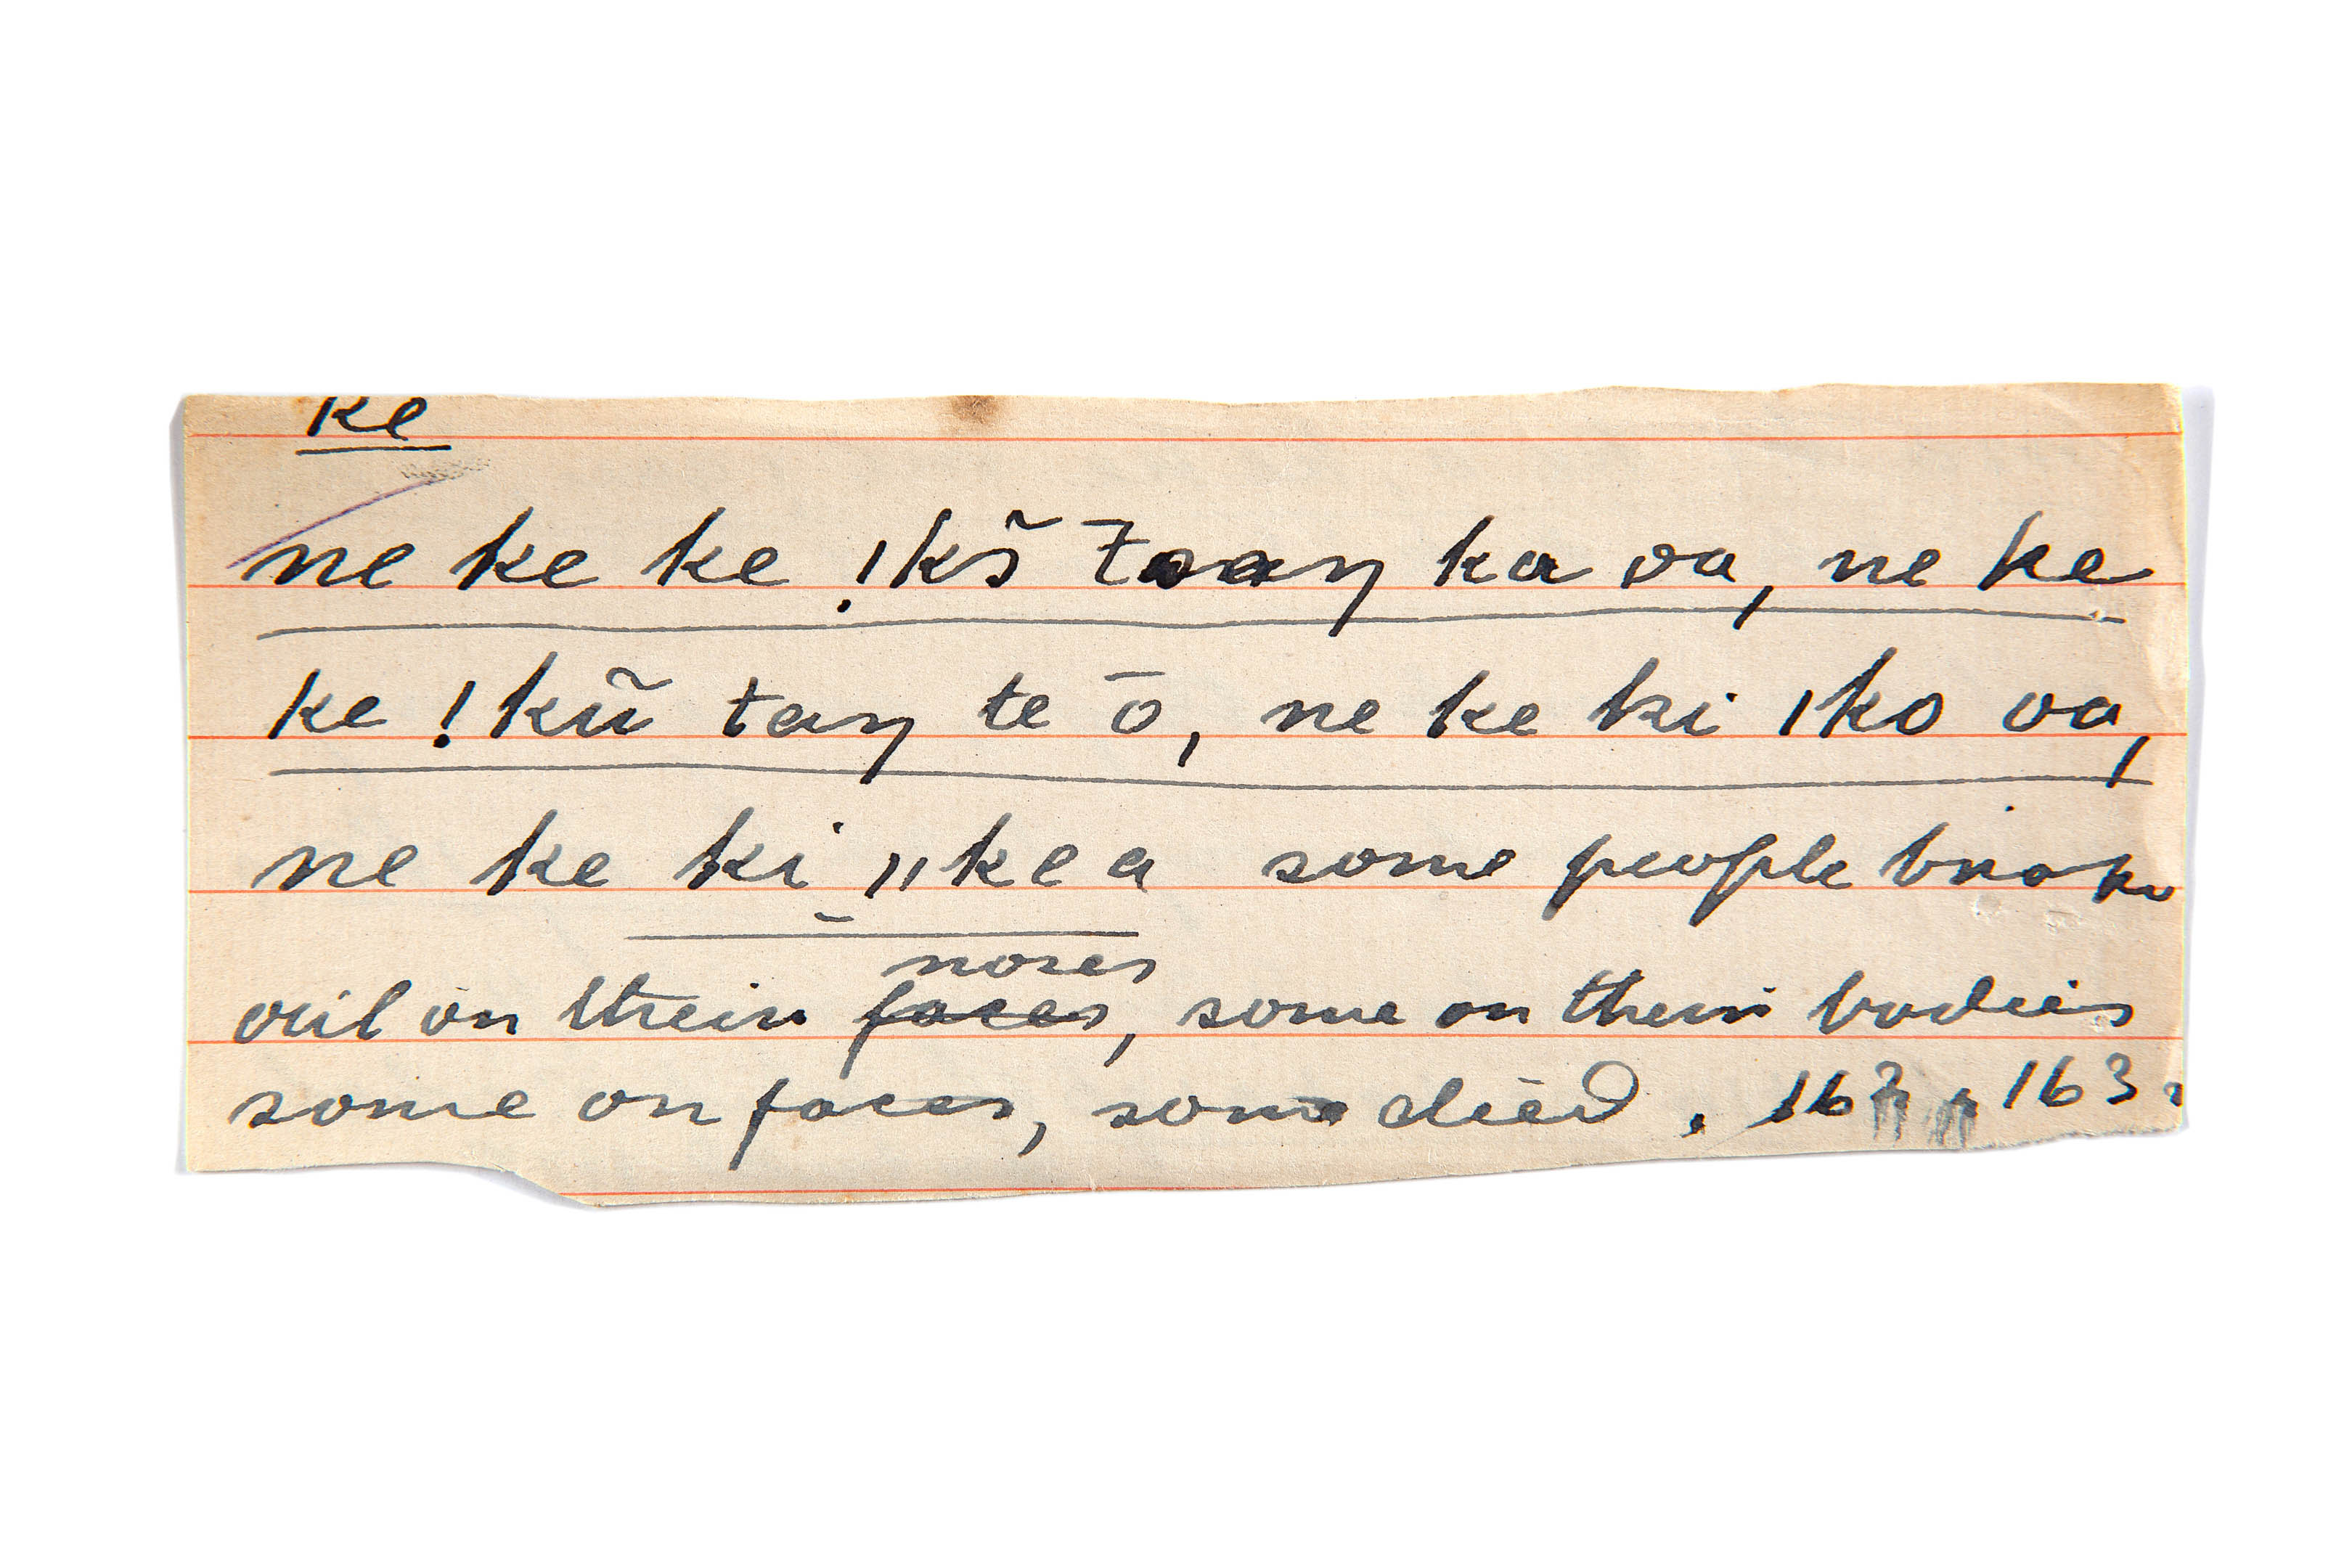 ke
ne ke ke !kõ taaŋ ka oa, ne ke
ke !kũ taŋ te ō, ne ke ki ǀko oa,
ne ke ki ǁkea some people broke
noses
out on their faces, some on their bodies
some on faces, some died. 163